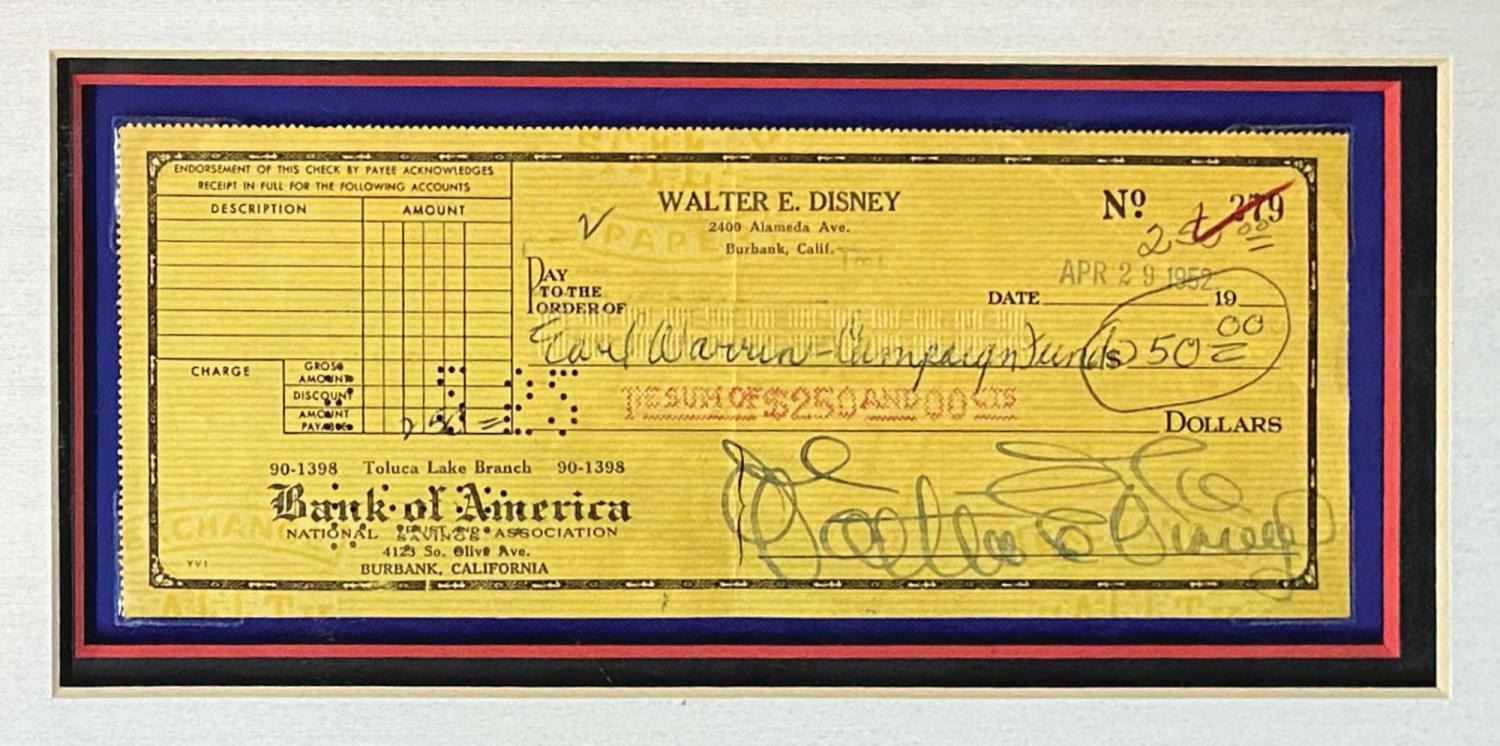 ENDORSEMENT OF THIS CHECK BY PAYEE ACKNOWLEDGES
RECEIPT IN FULL FOR THE FOLLOWING ACCOUNTS
DESCRIPTION AMOUNT
WALTER E. DISNEY
2400 Alameda Ave.
Burbank, Calif.
Nº 279
250 00
PAPE
APR 29 1952
DATE 19
PAY
TO THE
ORDER OF
Earl Warren - Campaign Fund $ 250 00
THE SUM OF $250 AND 00 CTS
DOLLARS
CHARGE
GROSS
AMOUNT
DISCOUNT
AMOUNT
PAYABLE
90-1398 Toluca Lake Branch 90-1398
Bank of America
NATIONAL TRUST AND SAVINGS ASSOCIATION
4123 So. Olive Ave.
BURBANK, CALIFORNIA
YV1
Walter E Disney